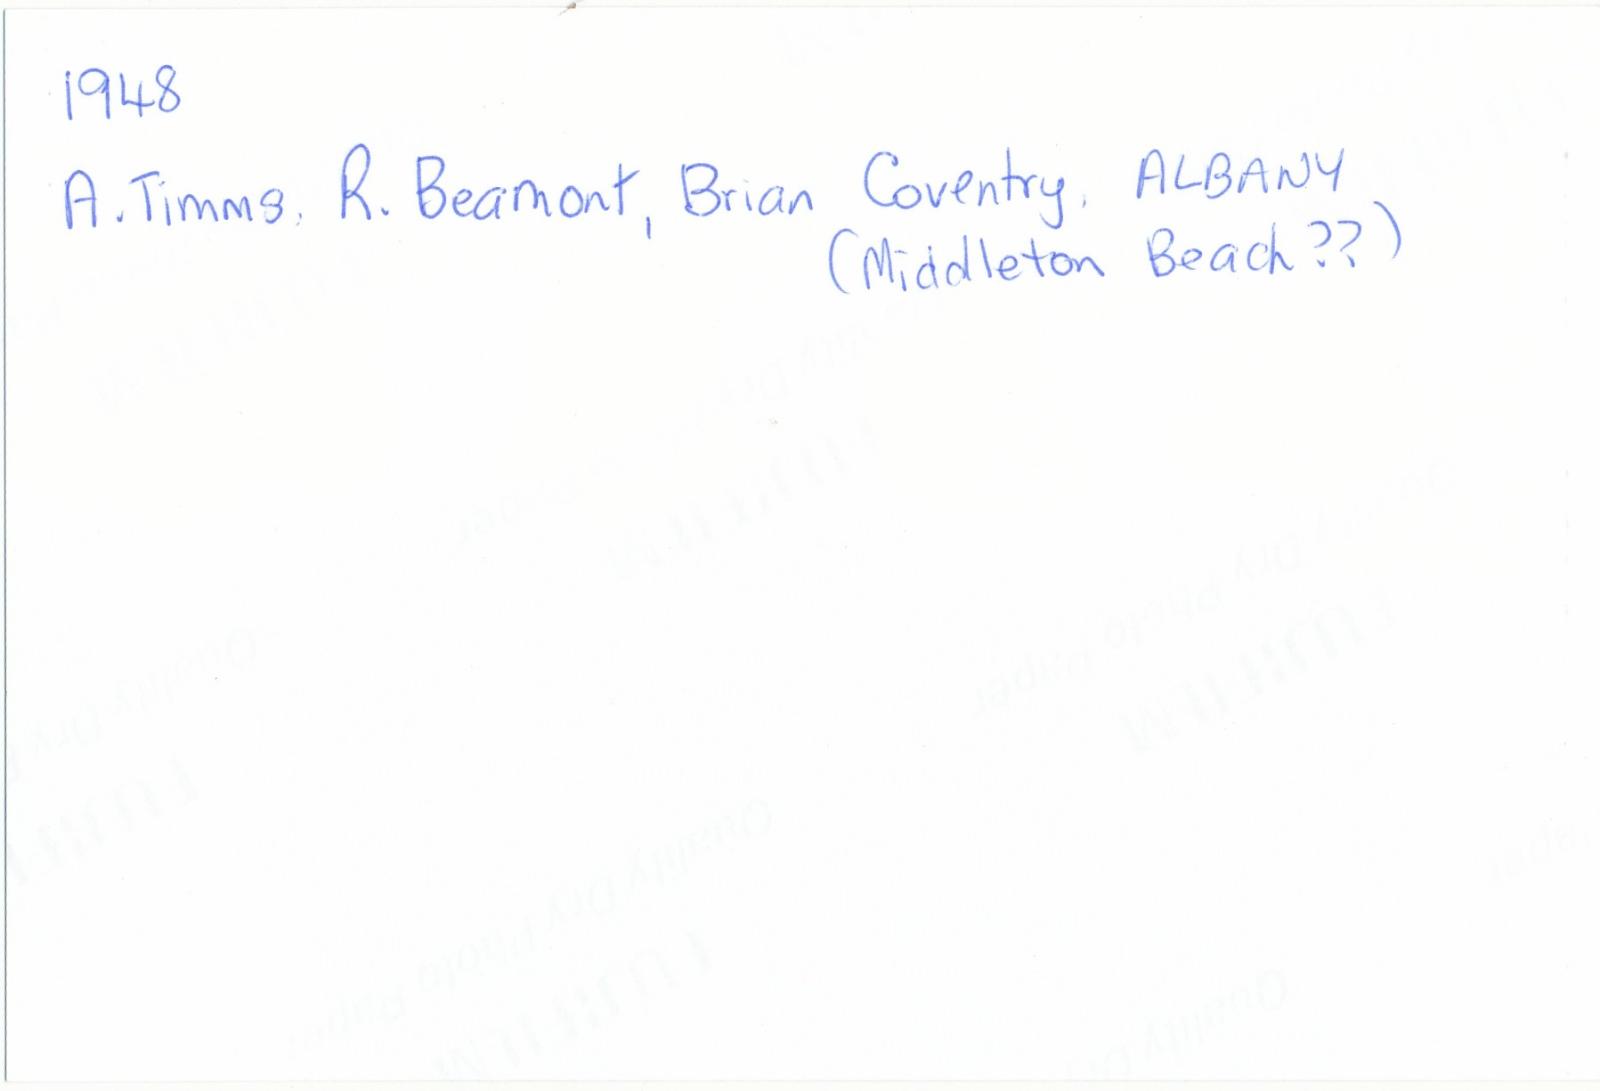 1948
A. Timms, R. Beamont, Brian Coventry, ALBANY
(Middleton Beach??)